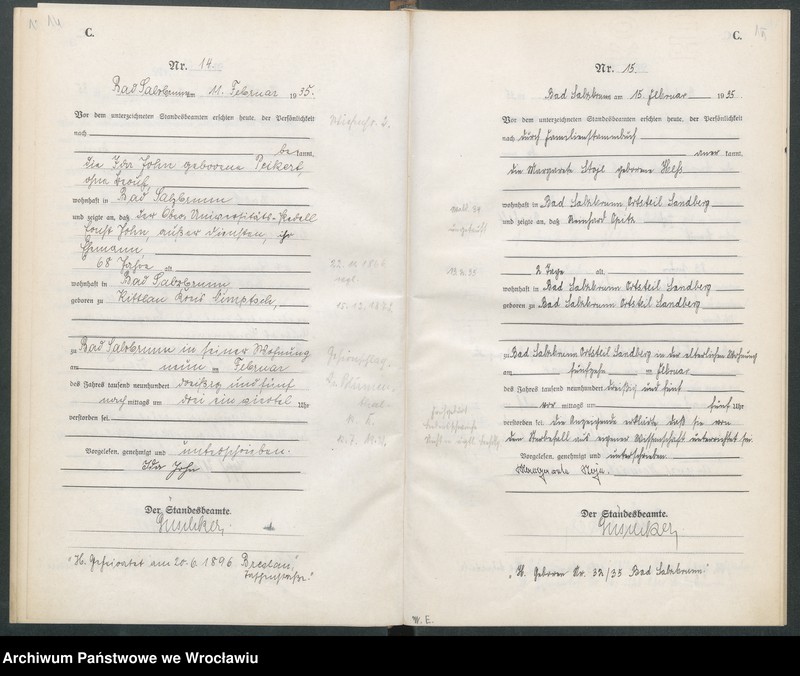 C.
Nr. 14.
Bad Salzbrunn am 11. Februar 1935.
Vor dem unterzeichneten Standesbeamten erschien heute, der Persönlichkeit
nach
bekannt,
die Ida John geborene Peikert,
ohne Beruf,
wohnhaft in Bad Salzbrunn
und zeigte an, daß der Ober-Universitäts-Pedell
Ernst John, außer Diensten, ihr
Ehmann,
68 Jahre alt
wohnhaft in Bad Salzbrunn,
geboren zu Kittlau Kreis Nimptsch,
22.10.1866
15.12.1872
zu Bad Salzbrunn in seiner Wohnung
am neun ten Februar
des Jahres tausend neunhundert dreißig und fünf
nach mittags um drei ein viertel Uhr
verstorben sei.
Vorgelesen, genehmigt und unterschrieben.
Ida John
Der Standesbeamte.
"H. Geheiratet am 20.6.1896 Breslau,
C.
Nr. 15.
Bad Salzbrunn am 15. Februar 1935
Vor dem unterzeichneten Standesbeamten erschien heute, der Persönlichkeit
nach durch Familienstammbuch
aner kannt,
die Margarete geborene Heß
wohnhaft in Bad Salzbrunn Ortsteil Sandberg
und zeigte an, daß Reinhard Opitz
2 Tage alt
wohnhaft in Bad Salzbrunn Ortsteil Sandberg
geboren zu Bad Salzbrunn Ortsteil Sandberg
zu Bad Salzbrunn Ortsteil Sandberg in der elterlichen Wohnung
am fünfzehn ten Februar
des Jahres tausend neunhundert dreißig und fünf
vor mittags um fünf Uhr
verstorben sei. Die Anzeigende erklärte, daß sie von
dem Sterbefall aus eigener Wissenschaft unterrichtet sei.
Vorgelesen, genehmigt und unterschrieben
Der Standesbeamte.
"H. Geboren Nr. 32/35 Bad Salzbrunn"
W. E.
Archiwum Państwowe we Wrocławiu